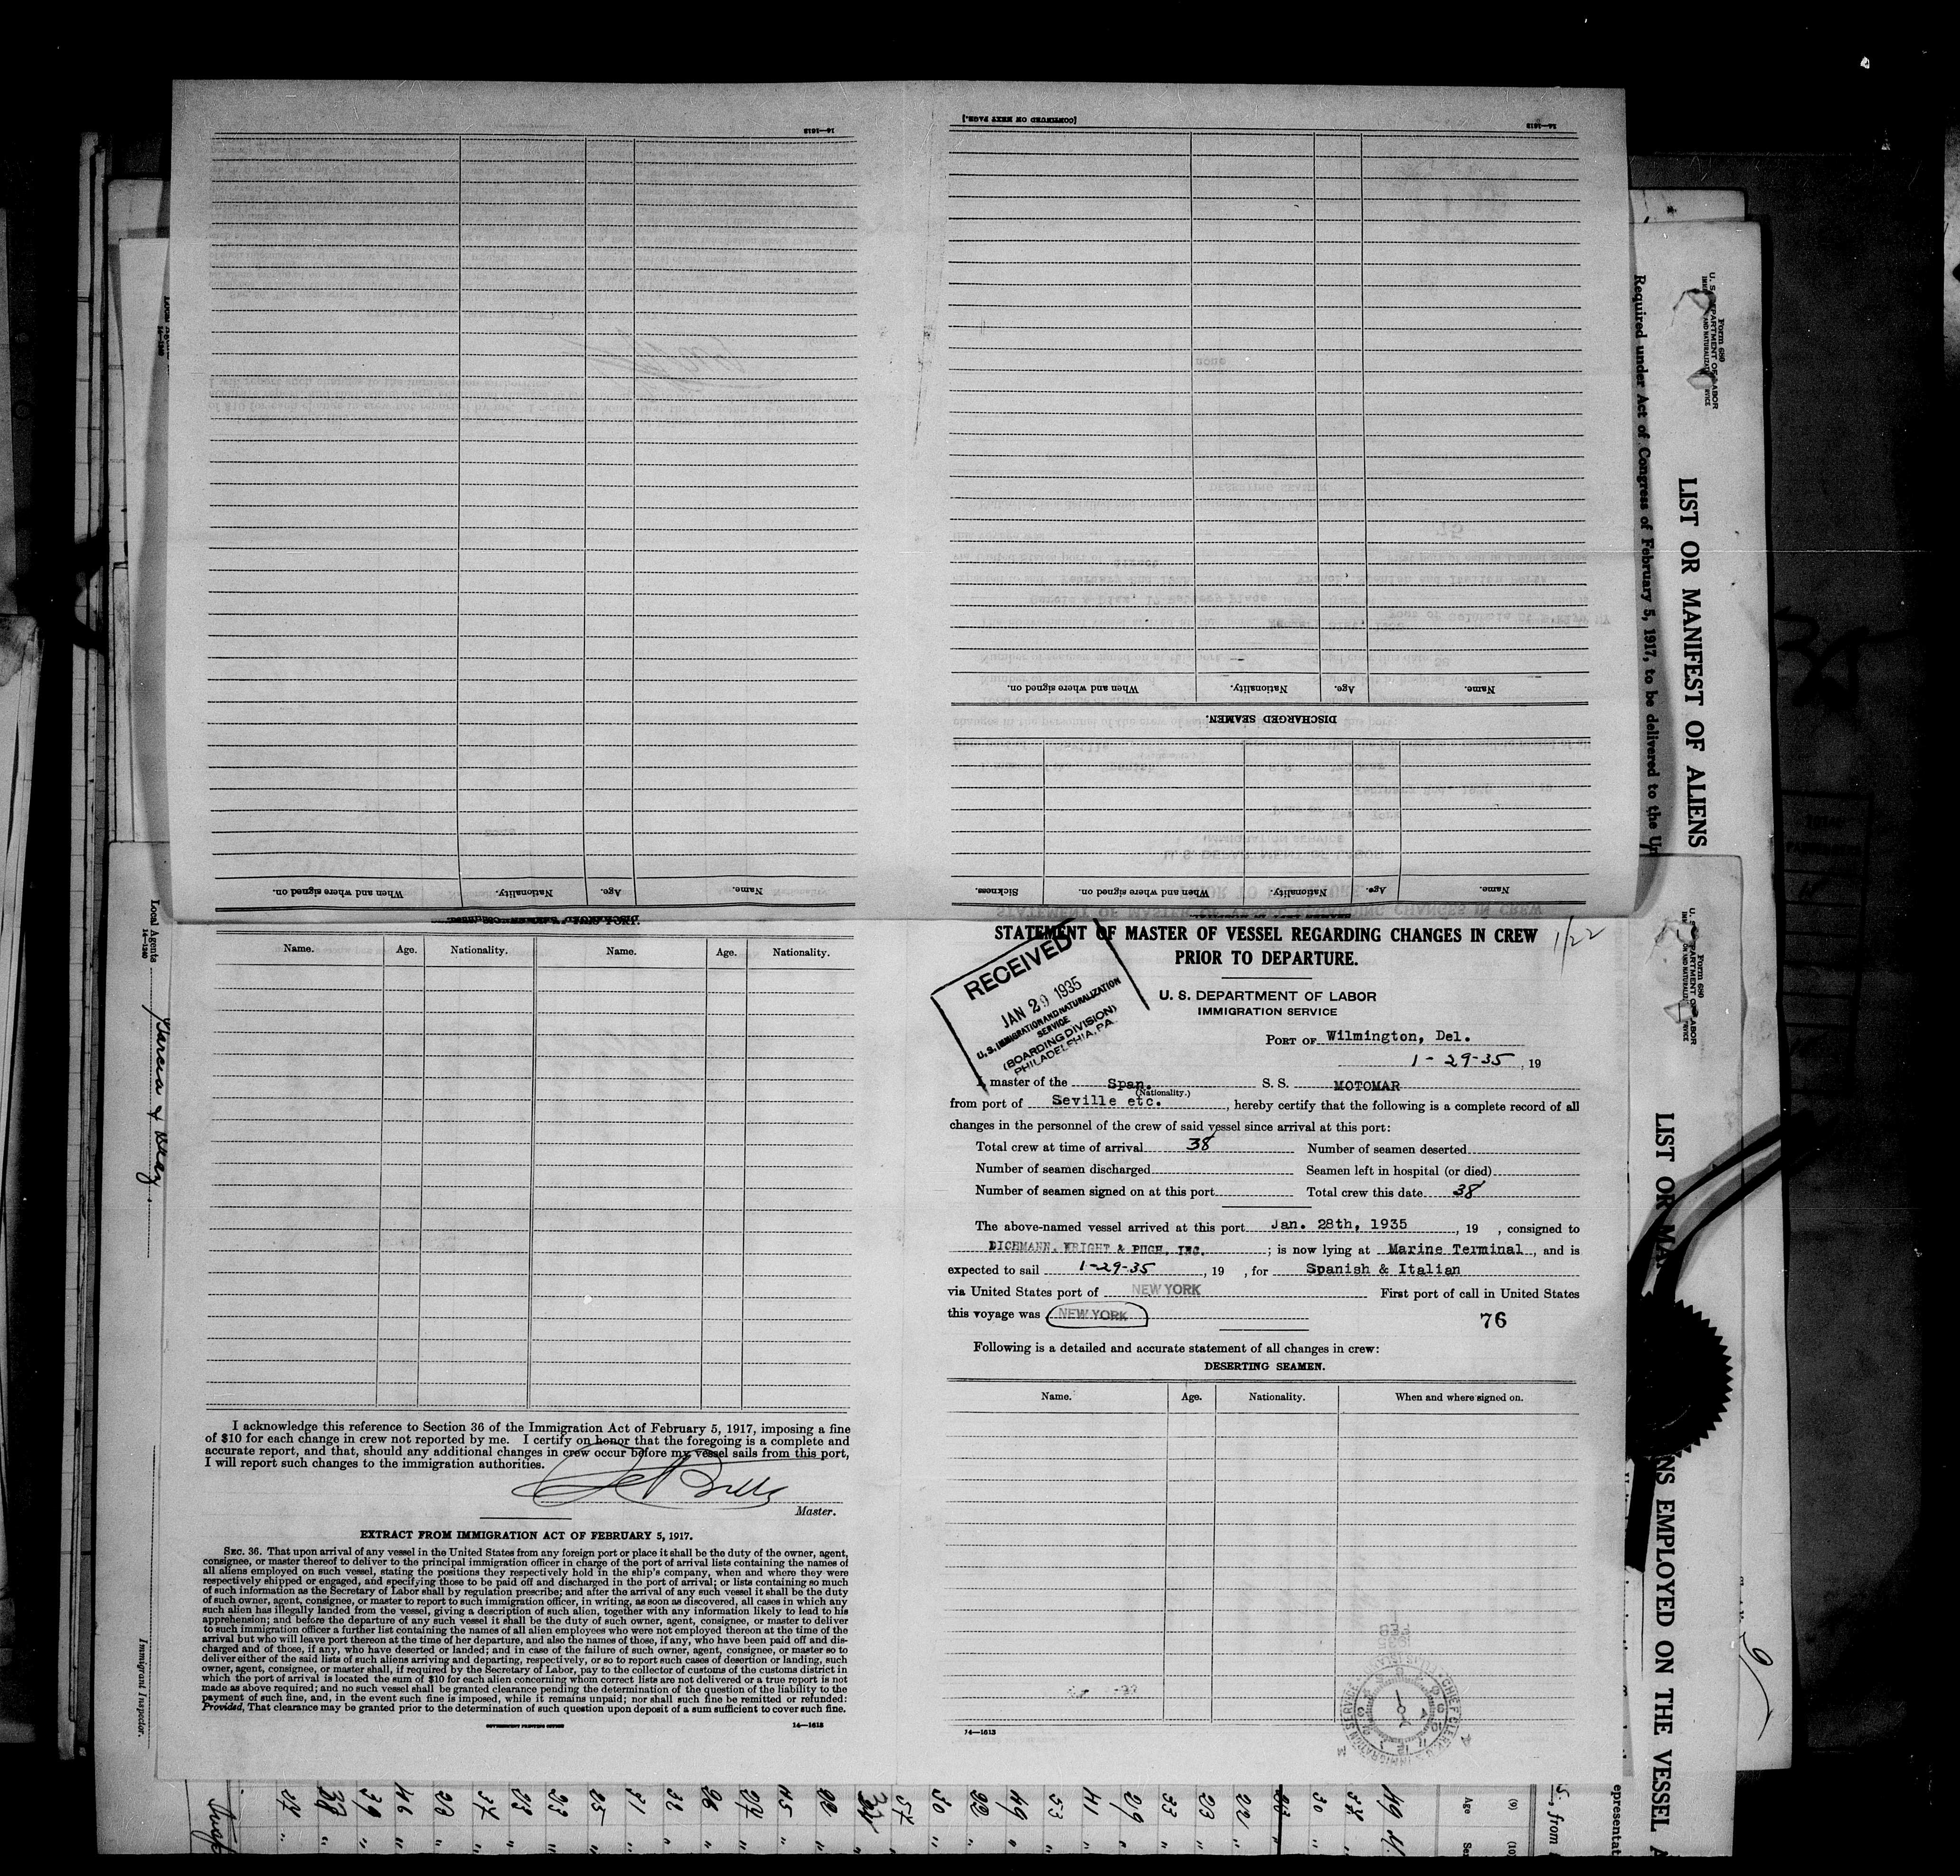 [CONTINUED ON NEXT PAGE.]
14—1613
14—1613
Name. Age. Nationality. When and where signed on.
DISCHARGED SEAMEN.
Name. Age. Nationality. When and where signed on. Sickness.
Name. Age. Nationality. When and where signed on.
Name. Age. Nationality. Name. Age. Nationality.
I acknowledge this reference to Section 36 of the Immigration Act of February 5, 1917, imposing a fine
of $10 for each change in crew not reported by me. I certify on honor that the foregoing is a complete and
accurate report, and that, should any additional changes in crew occur before my vessel sails from this port,
I will report such changes to the immigration authorities.
Master.
EXTRACT FROM IMMIGRATION ACT OF FEBRUARY 5, 1917.
SEC. 36. That upon arrival of any vessel in the United States from any foreign port or place it shall be the duty of the owner, agent,
consignee, or master thereof to deliver to the principal immigration officer in charge of the port of arrival lists containing the names of
all aliens employed on such vessel, stating the positions they respectively hold in the ship's company, when and where they were
respectively shipped or engaged, and specifying those to be paid off and discharged in the port of arrival; or lists containing so much
of such information as the Secretary of Labor shall by regulation prescribe; and after the arrival of any such vessel it shall be the duty
of such owner, agent, consignee, or master to report to such immigration officer, in writing, as soon as discovered, all cases in which any
such alien has illegally landed from the vessel, giving a description of such alien, together with any information likely to lead to his
apprehension; and before the departure of any such vessel it shall be the duty of such owner, agent, consignee, or master to deliver
to such immigration officer a further list containing the names of all alien employees who were not employed thereon at the time of the
arrival but who will leave port thereon at the time of her departure, and also the names of those, if any, who have been paid off and dis-
charged and of those, if any, who have deserted or landed; and in case of the failure of such owner, agent, consignee, or master so to
deliver either of the said lists of such aliens arriving and departing, respectively, or so to report such cases of desertion or landing, such
owner, agent, consignee, or master shall, if required by the Secretary of Labor, pay to the collector of customs of the customs district in
which the port of arrival is located the sum of $10 for each alien concerning whom correct lists are not delivered or a true report is not
made as above required; and no such vessel shall be granted clearance pending the determination of the question of the liability to the
payment of such fine, and, in the event such fine is imposed, while it remains unpaid; nor shall such fine be remitted or refunded:
Provided, That clearance may be granted prior to the determination of such question upon deposit of a sum sufficient to cover such fine.
GOVERNMENT PRINTING OFFICE
14—1613
STATEMENT OF MASTER OF VESSEL REGARDING CHANGES IN CREW
PRIOR TO DEPARTURE.
1/22
RECEIVED
JAN 29 1935
U. S. IMMIGRATION AND NATURALIZATION
SERVICE
(BOARDING DIVISION)
PHILADELPHIA, PA.
U. S. DEPARTMENT OF LABOR
IMMIGRATION SERVICE
PORT OF Wilmington, Del.
1-29-35, 19
I, master of the Span. S. S. MOTOMAR
(Nationality.)
from port of Seville etc., hereby certify that the following is a complete record of all
changes in the personnel of the crew of said vessel since arrival at this port:
Total crew at time of arrival 38 Number of seamen deserted
Number of seamen discharged Seamen left in hospital (or died)
Number of seamen signed on at this port Total crew this date 38
The above-named vessel arrived at this port Jan. 28th, 1935, 19 , consigned to
DICHMANN, WRIGHT & PUGH, INC. ; is now lying at Marine Terminal, and is
expected to sail 1-29-35, 19 , for Spanish & Italian
via United States port of NEW YORK First port of call in United States
this voyage was NEW YORK
76
Following is a detailed and accurate statement of all changes in crew:
DESERTING SEAMEN.
Name. Age. Nationality. When and where signed on.
14—1613
Form 680
LIST OR MANIFEST OF ALIENS
Required under Act of Congress of February 5, 1917, to be delivered to the
Form 680
LIST OR
NS EMPLOYED ON THE VESSEL
Local Agents
14—1240
Immigrant Inspector.
Age
(9)
(10)